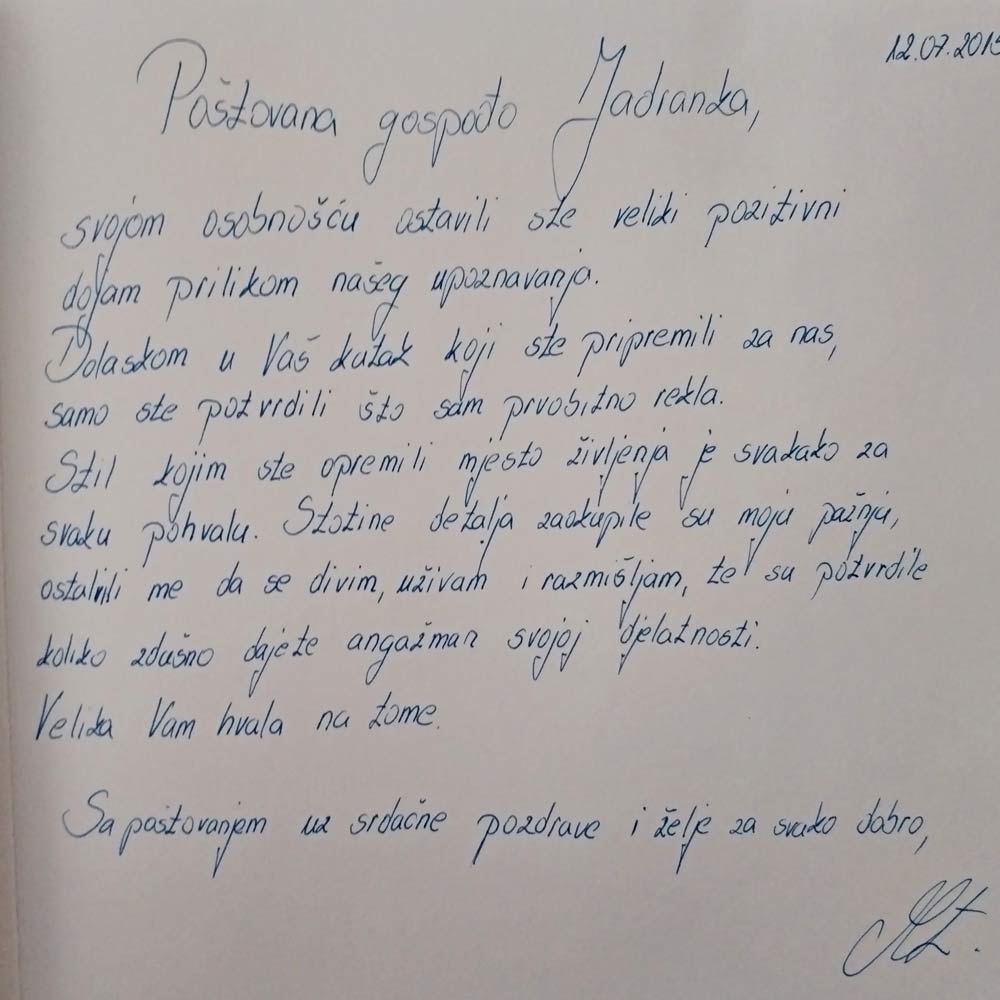 12.07.2015
Poštovana gospođo Jadranka,
svojom osobnošću ostavili ste veliki pozitivni
dojam prilikom našeg upoznavanja.
Dolaskom u Vaš kutak koji ste pripremili za nas,
samo ste potvrdili što sam prvobitno rekla.
Stil kojim ste opremili mjesto življenja je svakako za
svaku pohvalu. Stotine detalja zaokupile su moju pažnju,
ostavili me da se divim, uživam i razmišljam, te su potvrdile
koliko zdušno dajete angažman svojoj djelatnosti.
Velika Vam hvala na tome.
Sa poštovanjem uz srdačne pozdrave i želje za svako dobro,